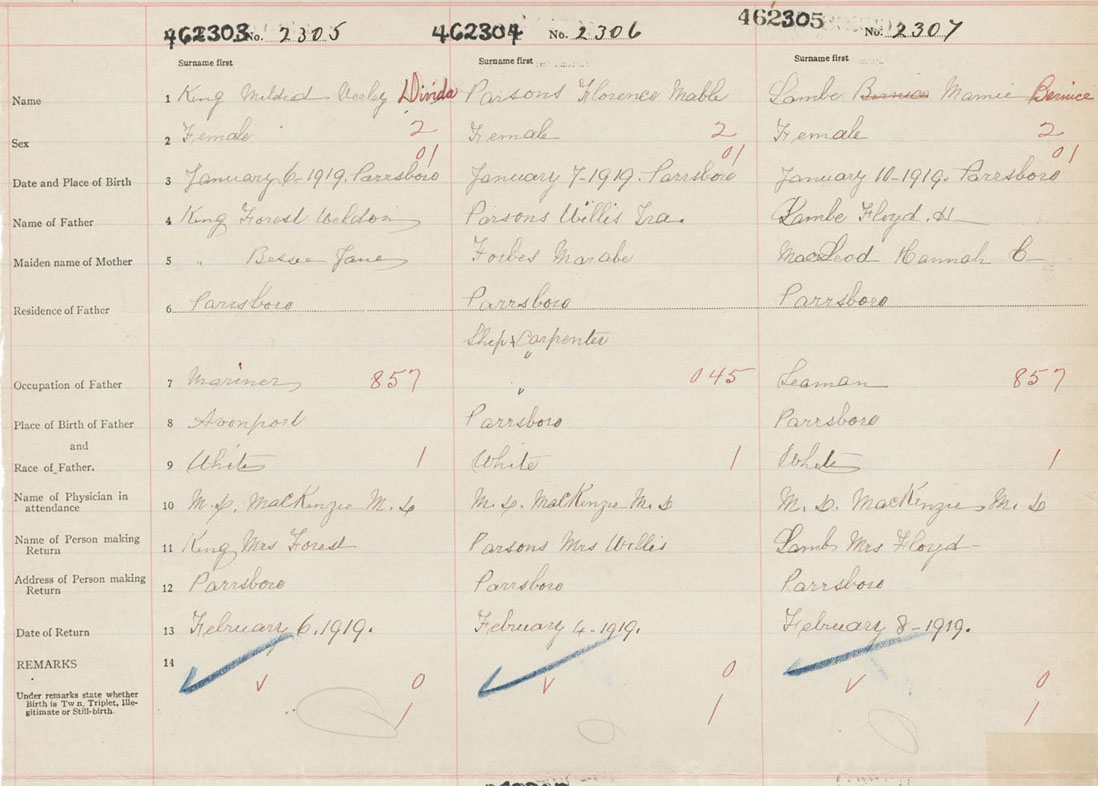 462303 No. 2305 462304 No. 2306 462305 No. 2307
Surname first Surname first Surname first
Name 1 King Mildred Verley Divida Parsons Florence Mable Lambe Bernice Mamie Bernice
Sex 2 Female 2 Female 2 Female 2
01 01 01
Date and Place of Birth 3 January 6-1919. Parrsboro January 7-1919. Parrsboro January 10-1919. Parrsboro
Name of Father 4 King Forest Weldon Parsons Willis Ira. Lambe Floyd. H
Maiden name of Mother 5 " Bessie Jane Forbes Marabe MacLeod Hannah C
Residence of Father 6 Parrsboro Parrsboro Parrsboro
Ship Carpenter
"
Occupation of Father 7 Mariner 857 " 045 Seaman 857
Place of Birth of Father 8 Avonport Parrsboro Parrsboro
and
Race of Father. 9 White 1 White 1 White 1
Name of Physician in attendance 10 M. D. MacKenzie M. D M. D. MacKenzie M. D M. D. MacKenzie, M. D
Name of Person making Return 11 King Mrs Forest Parsons Mrs Willis Lamb Mrs Floyd
Address of Person making Return 12 Parrsboro Parrsboro Parrsboro
Date of Return 13 February 6, 1919. February 4-1919. February 8-1919.
REMARKS 14
Under remarks state whether 0 0 0
Birth is Twin, Triplet, Ille-
gitimate or Still-birth. 1 1 1